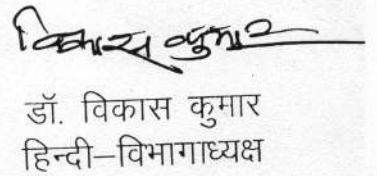 विकास कुमार
डॉ. विकास कुमार
हिन्दी–विभागाध्यक्ष